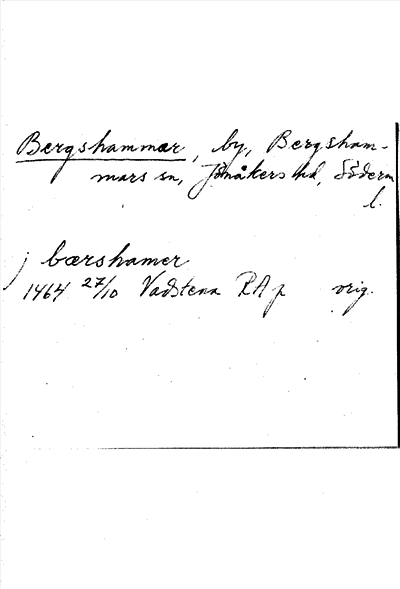 Bergshammar, by, Bergsham-
mars sn, Jönåkers hd, Söderm
l.
j bærshamer
1464 27/10 Vadstena RAp orig.